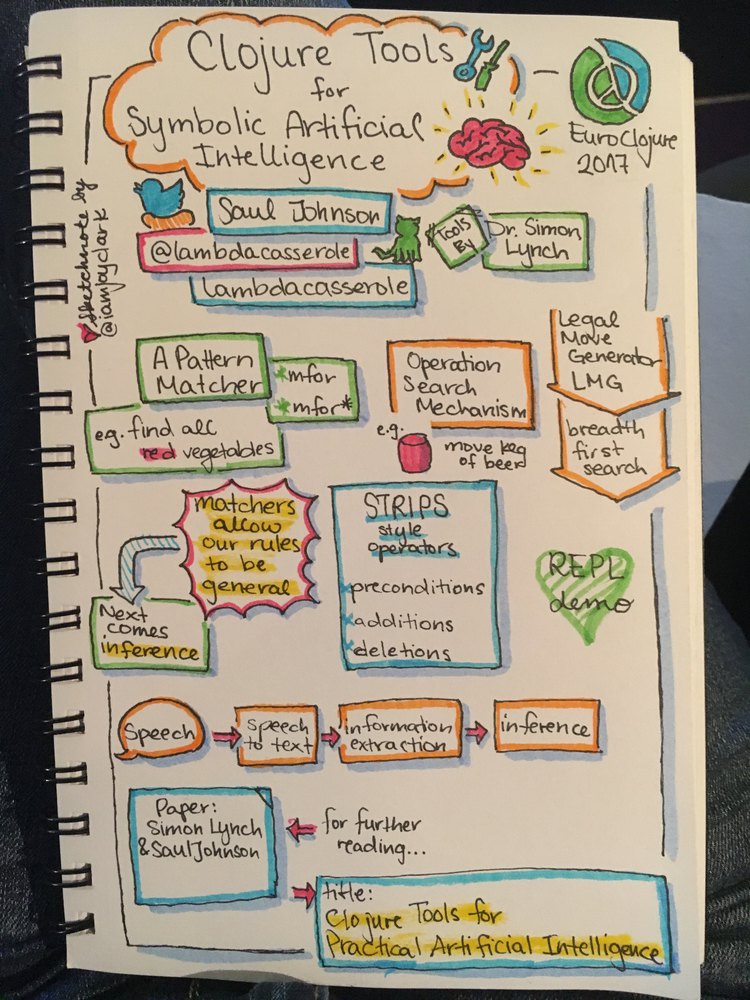 Clojure Tools
for
Symbolic Artificial
Intelligence
EuroClojure
2017
Sketchnote by
@iamjoyclark
Saul Johnson
@lambdacasserole
lambdacasserole
Tools
By
Dr. Simon
Lynch
A Pattern
Matcher
*mfor
*mfor*
eg. find all
red vegetables
Operation
Search
Mechanism
e.g.
move keg
of beer
Legal
Move
Generator
LMG
breadth
first
search
matchers
allow
our rules
to be
general
Next
comes
inference
STRIPS
style
operators
*preconditions
*additions
*deletions
REPL
demo
Speech
speech
to text
information
extraction
inference
Paper:
Simon Lynch
& Saul Johnson
for further
reading...
title:
Clojure Tools for
Practical Artificial Intelligence